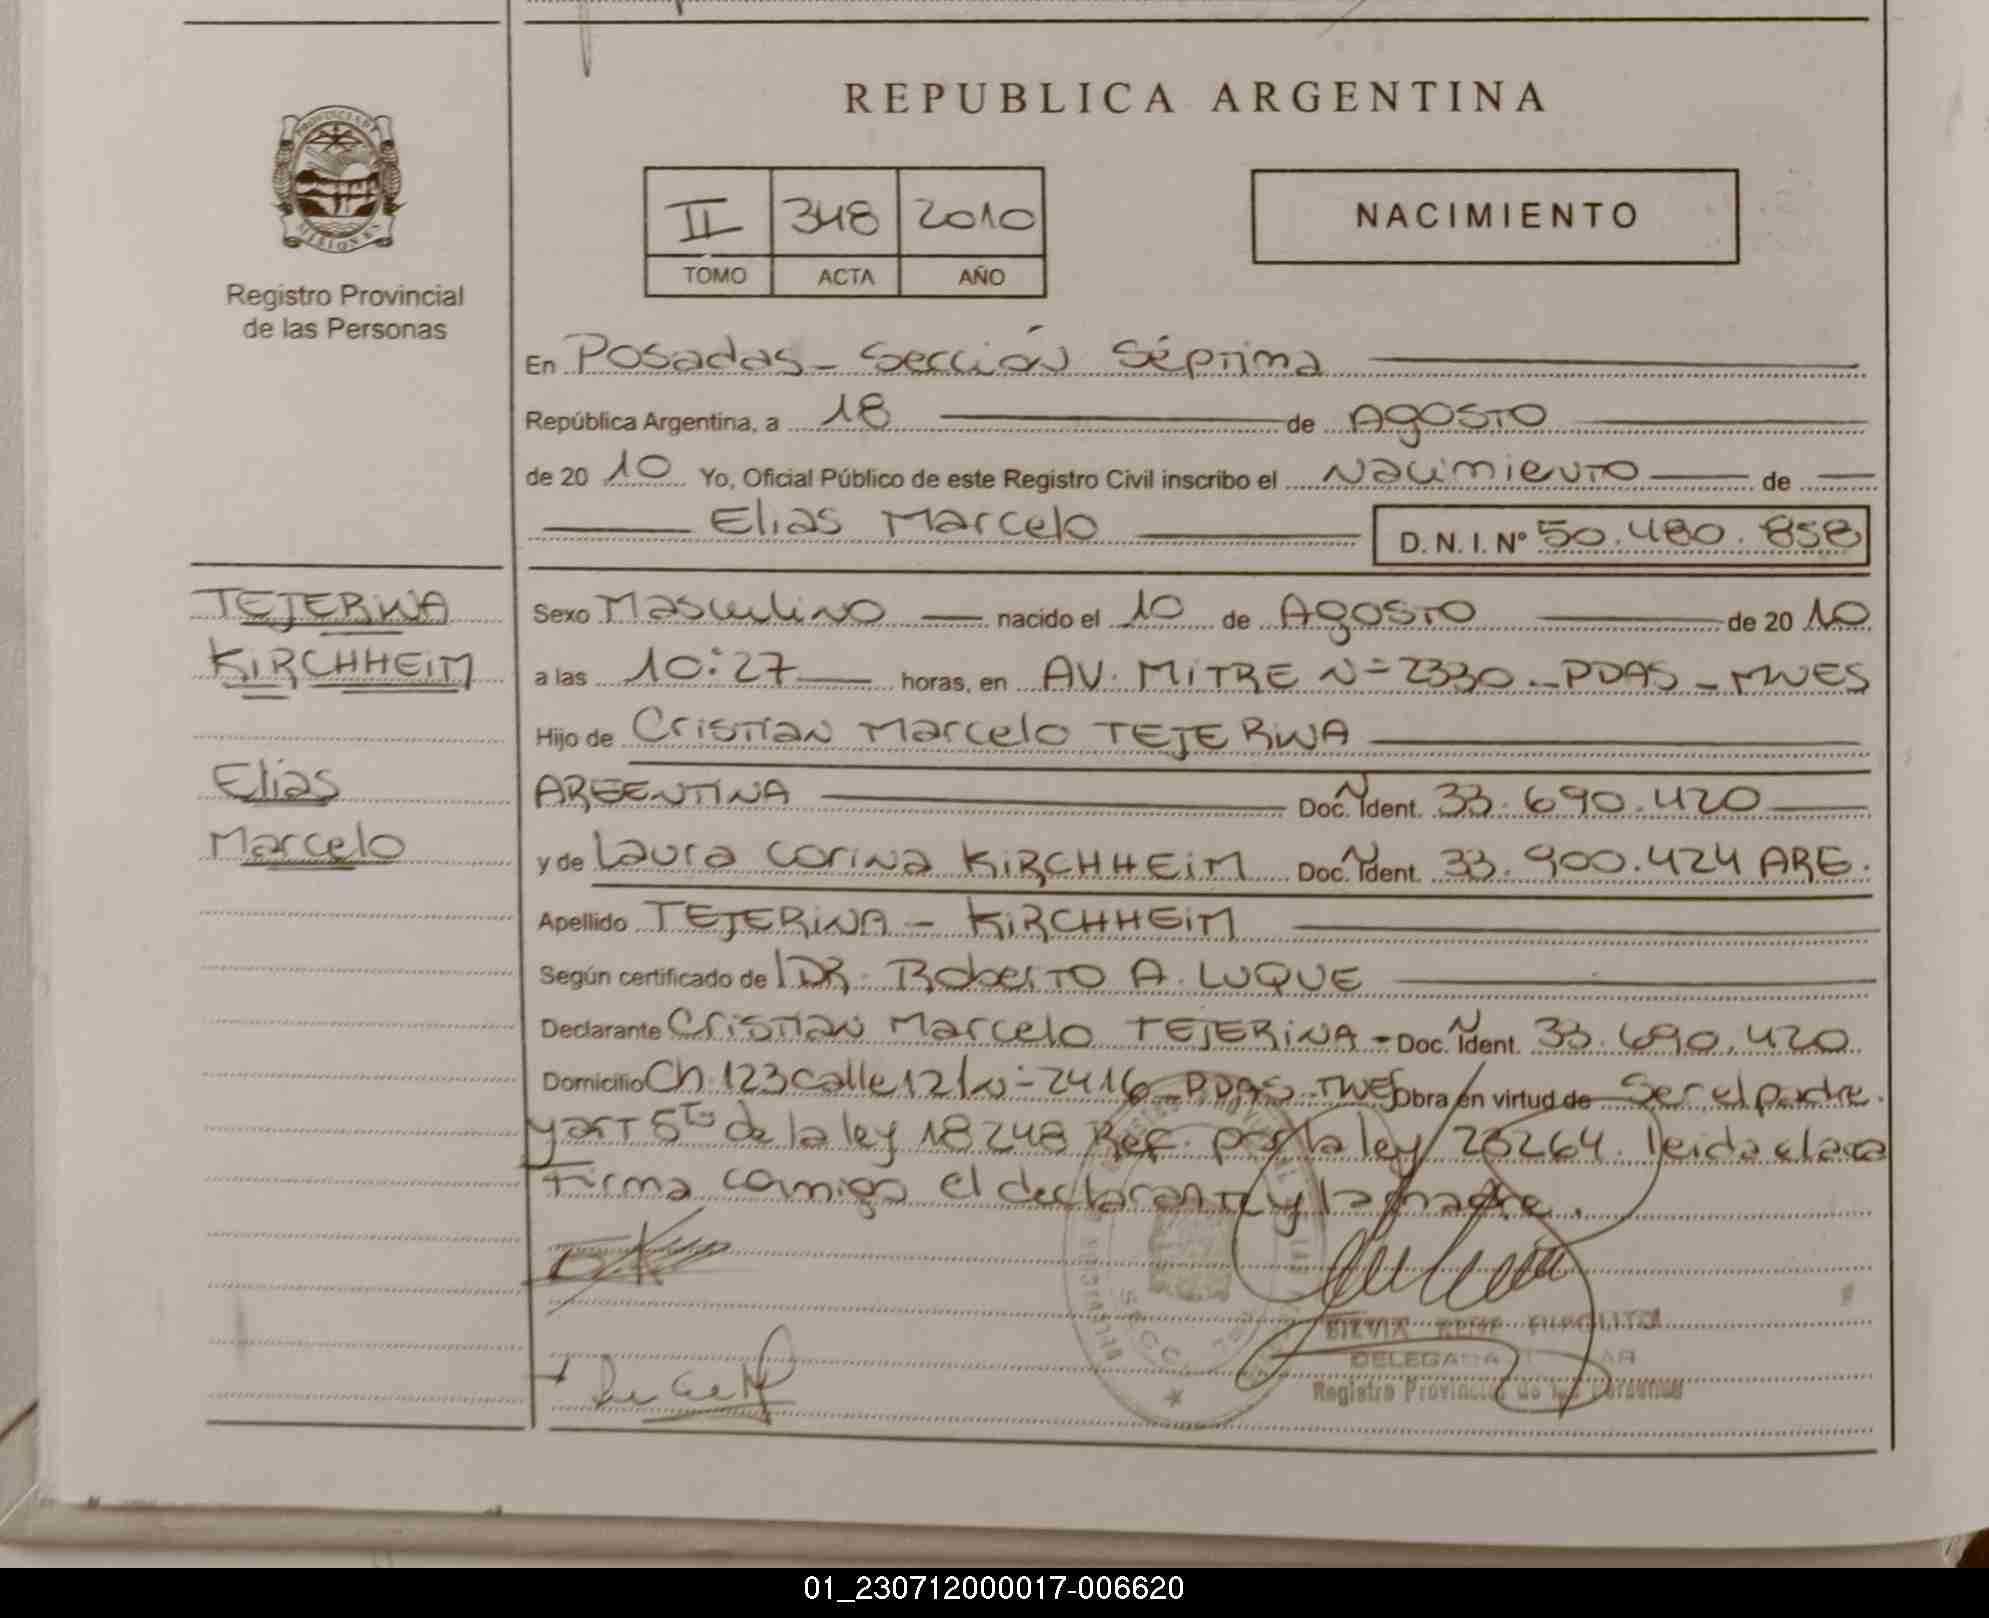 REPUBLICA ARGENTINA
PROVINCIA DE
MISIONES
Registro Provincial
de las Personas
II 348 2010
TOMO ACTA AÑO
NACIMIENTO
En Posadas - Sección Séptima
República Argentina, a 18 de Agosto
de 2010 Yo, Oficial Público de este Registro Civil inscribo el Nacimiento de
Elias Marcelo D. N. I. Nº 50.480.858
TEJERINA
KIRCHHEIM
Elias
Marcelo
Sexo Masculino nacido el 10 de Agosto de 2010
a las 10:27 horas, en AV. MITRE N= 2330 - PDAS - MNES
Hijo de Cristian Marcelo TEJERINA
ARGENTINA Doc. Ident. 33.690.420
y de Laura Corina KIRCHHEIM Doc. Ident. 33.900.424 ARG.
Apellido TEJERINA - KIRCHHEIM
Según certificado de DR. Roberto A. LUQUE
Declarante Cristian Marcelo TEJERINA - Doc. Ident. 33.690.420
Domicilio Ch. 123 calle 121 N= 2416 PDAS. MNES Obra en virtud de Ser el padre.
y art 5to de la ley 18248 Ref. por la ley 26264. leida el acta
Firma conmigo el declarante y la madre.
SILVIA
DELEGADA
Registro Provincial de las Personas
01_230712000017-006620